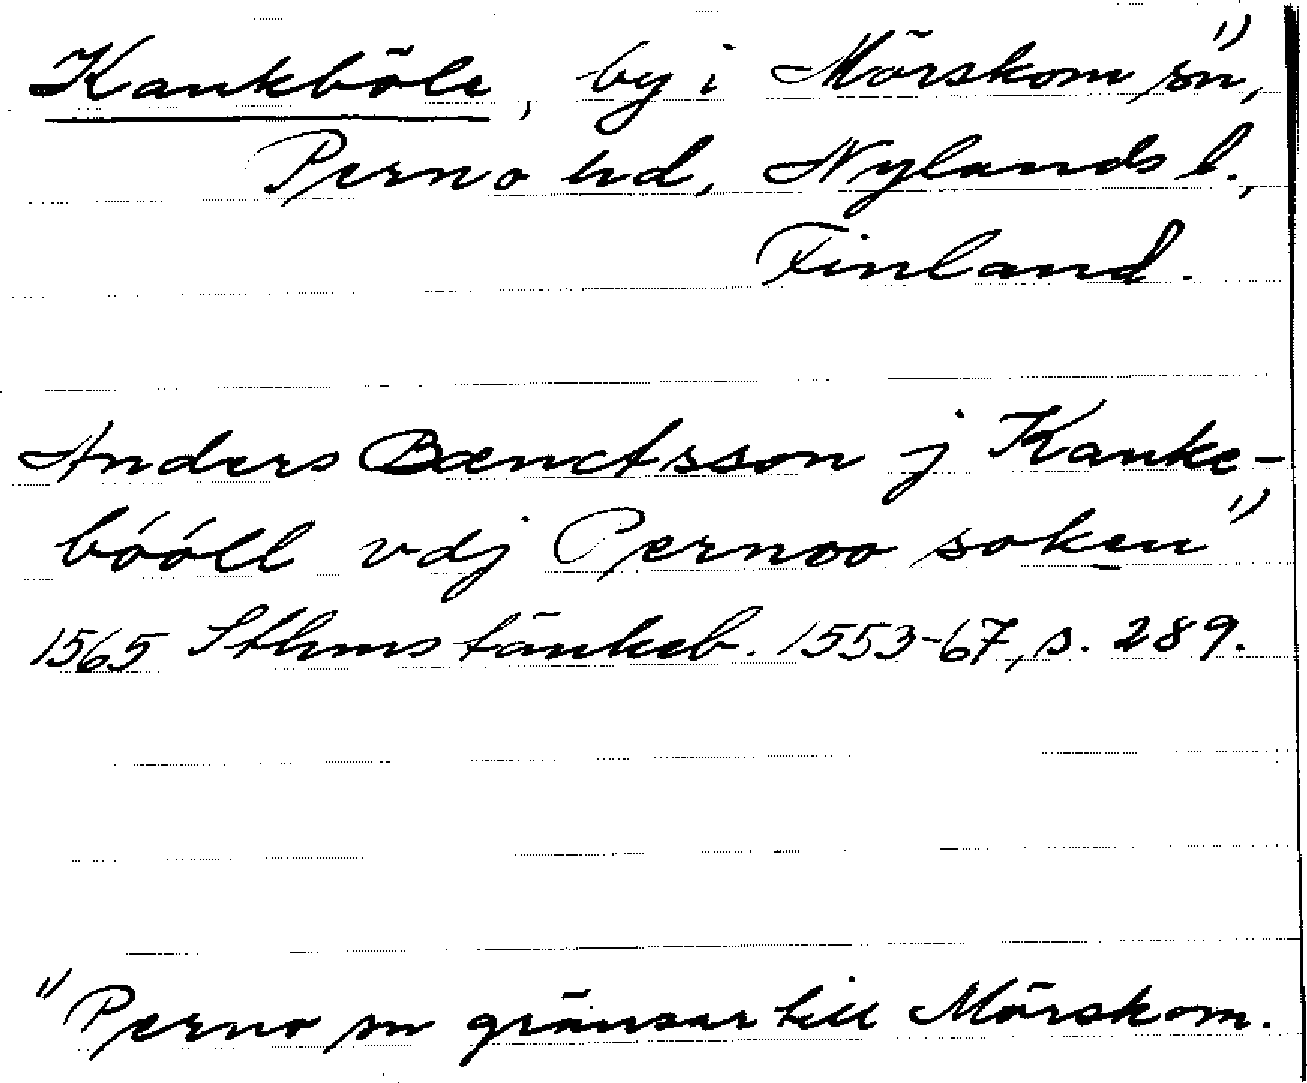 Kankböle, by i Mörskom sn¹⁾,
Perno hd, Nylands l.,
Finland.
Anders Bænctsson j Kanke-
bóóll vdj Pernoo soken¹⁾
1565 Sthms tänkeb. 1553-67, s. 289.
¹⁾ Perno sn gränsar till Mörskom.